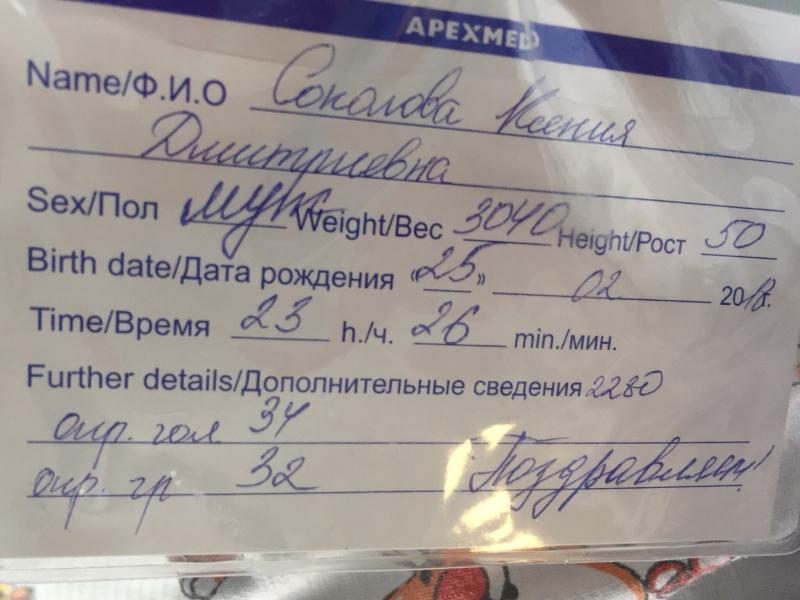 APEXMED
Name/Ф.И.О Соколова Ксения
Дмитриевна
Sex/Пол муж Weight/Вес 3040 Height/Рост 50
Birth date/Дата рождения «25» 02 2018г.
Time/Время 23 h./ч. 26 min./мин.
Further details/Дополнительные сведения 2280
окр. гол 34
окр. гр 32 Поздравляем!